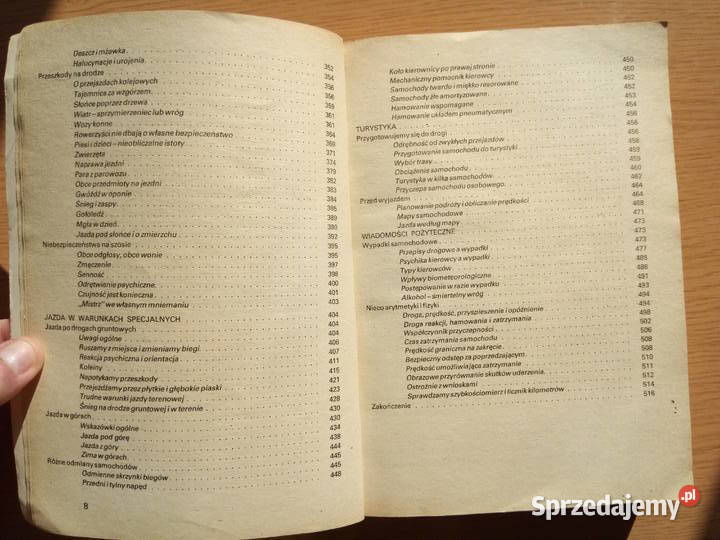 Deszcz i mżawka
Halucynacje i urojenia 352
Przeszkody na drodze 354
O przejazdach kolejowych
Tajemnica za wzgórzem
Słońce poprzez drzewa
Wiatr – sprzymierzeniec lub wróg 361
Wozy konne 361
Rowerzyści nie dbają o własne bezpieczeństwo 364
Piesi i dzieci – nieobliczalne istoty
Zwierzęta 371
Naprawa jezdni 374
Para z parowozu
Obce przedmioty na jezdni 382
Gwóźdź w oponie 383
Śnieg i zaspy 385
Gołoledź 389
Mgła w dzień 392
Jazda pod słońce i o zmierzchu 393
Niebezpieczeństwa na szosie 395
Obce odgłosy, obce wonie 395
Zmęczenie 397
Senność 398
Odrętwienie psychiczne 400
Czujność jest konieczna 401
„Mistrz” we własnym mniemaniu 403
JAZDA W WARUNKACH SPECJALNYCH 404
Jazda po drogach gruntowych 404
Uwagi ogólne 404
Ruszamy z miejsca i zmieniamy biegi 407
Reakcja psychiczna i orientacja 411
Koleiny 415
Napotykamy przeszkody 421
Przejeżdżamy przez płytkie i głębokie piaski 423
Trudne warunki jazdy terenowej 428
Śnieg na drodze gruntowej i w terenie 430
Jazda w górach 430
Wskazówki ogólne 434
Jazda pod górę 438
Jazda z góry 444
Zima w górach 445
Różne odmiany samochodów 445
Odmienne skrzynki biegów 448
Przedni i tylny napęd
8
Koło kierownicy po prawej stronie 450
Mechaniczny pomocnik kierowcy 450
Samochody twardo i miękko resorowane 452
Samochody źle amortyzowane 453
Hamowanie wspomagane 454
Hamowanie układem pneumatycznym
TURYSTYKA 456
Przygotowujemy się do drogi 456
Odrębność od zwykłych przejazdów 456
Przygotowanie samochodu do turystyki
Wybór trasy 459
Obciążenie samochodu
Turystyka w kilka samochodów
Przyczepa samochodu osobowego
Przed wyjazdem 464
Planowanie podróży i obliczanie prędkości
Mapy samochodowe 468
Jazda według mapy 471
WIADOMOŚCI POŻYTECZNE 473
Wypadki samochodowe 473
Przepisy drogowe a wypadki 473
Psychika kierowcy a wypadki 477
Typy kierowców 485
Wpływy biometeorologiczne 486
Postępowanie w razie wypadku 491
Alkohol – śmiertelny wróg 494
Nieco arytmetyki i fizyki 494
Droga, prędkość, przyspieszenie i opóźnienie
Droga reakcji, hamowania i zatrzymania 498
Współczynnik przyczepności 502
Czas zatrzymania samochodu 506
Prędkość graniczna na zakręcie 508
Bezpieczny odstęp za poprzedzającym 508
Prędkość umożliwiająca zatrzymanie 510
Obrazowe przyrównanie skutków uderzenia 511
Ostrożnie z wnioskami 512
Sprawdzamy szybkościomierz i licznik kilometrów 514
Zakończenie 516
Sprzedajemy.pl